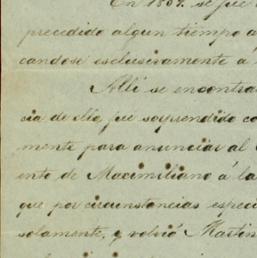 En 1807. se fué
precedido algun tiempo a
candose esclusivamente á
Allí se encontra
cia de ello fue sorprendido co
mente para anunciar al
ento de Maximiliano á la
que por circunstancias especi
solamente, y volvió Martin